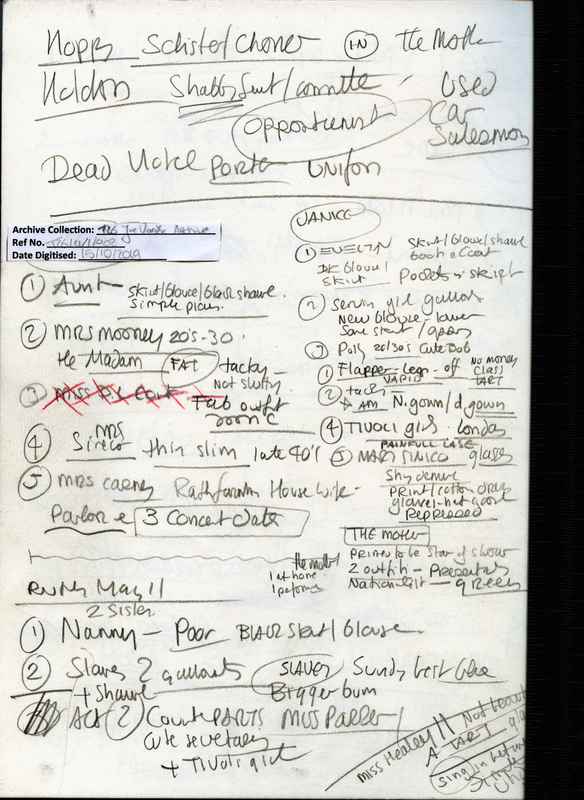 Hoppy
(IN) the Mother
Holohan Shabby suit / committe
Opportunist
Used
Car
Salesman
Dead Hotel Porter Uniform
Archive Collection:
Ref No.
Date Digitised: 15/10/2019
① Aunt - Skirt/blouse/black shawl.
Simple plain.
② MRS mooney 20's-30
the Madam FAT tacky -
Not slutty
Fab outfit
③ Miss
④ MRS Sinico thin slim late 40's
⑤ MRS Carney House wife -
Parlor & 3 Concert Date
the mother
1 at home
1 performance
JANICE
① EVELYN Skirt/blouse/shawl
boots & coat
DK blouse/
Skirt Pockets in skirt
② servin girl gallants
New blouse - lower
Same skirt / apron
③ Polly 20/30's Cute Bob
① Flapper - legs - off No money
VAPID CLASS
TART
② tacky
AM N.gown / d.gown
④ TIVOLI girls - London
PAINFULL CASE
⑤ MARY SINICO glasses
Shy demure
print/cotton dress
gloves-hat & coat
Repressed
THE MOTHER
Primed to be Star of Show
2 outfits -
Nationalist - green
May 11
2 Sister
① Nanny - Poor BLACK Skirt / blouse.
② Slavey 2 gallants SLAVEY Sunday best blue
+ Shawl Bigger bum
Act ② CounterPARTS Miss Parker /
Cute secretary
+ Tivoli girl
Miss Healey 11 Not
A TART
sing in between